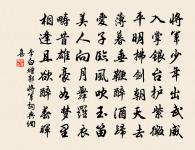 將軍少年出武威
入掌銀台护紫微
平明拂劍朝天去
薄暮垂鞭醉酒歸
愛子臨風吹玉笛
美人向月舞羅衣
疇昔雄豪如夢
相逢且欲醉春暉
李白贈郭將軍詞典網